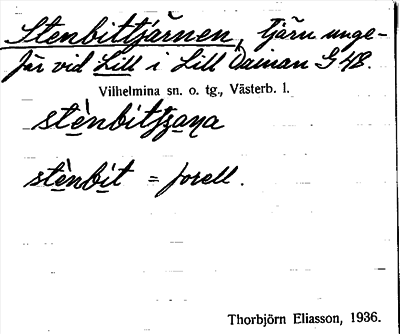 Stenbittjärnen, tjärn unge-
fär vid Lill i Lill Dainan G 48.
Vilhelmina sn. o. tg., Västerb. l.
stènbittʃana
stènbit = forell.
Thorbjörn Eliasson, 1936.